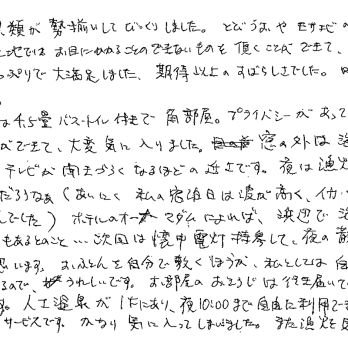 類が勢揃いしてびっくりしました。とどうふやモサエビの
地ではお目にかかることのできないものを頂くことができて、
っぷりで大満足しました、期待以上のすばらしさでした。
は4.5畳バス・トイレ付きで角部屋。プライバシーがあって
ができて、大変気に入りました。窓の外は
テレビが聞きづらくなるほどの近さです。夜は漁火
だろうなぁ(あいにく私の宿泊日は波が高く、イカ
でした)ホテルのオーナーマダムによれば、浜辺で
もあるとのこと…次回は懐中電灯持参して、夜の散
思います。おふとんを自分で敷くほうが、私としては
るので、うれしいです。お部屋のおそうじは行き届いて
す。人工温泉が1Fにあり、夜10:00まで自由に利用でき
サービスです。かなり気に入ってしまいました。また漁火を見